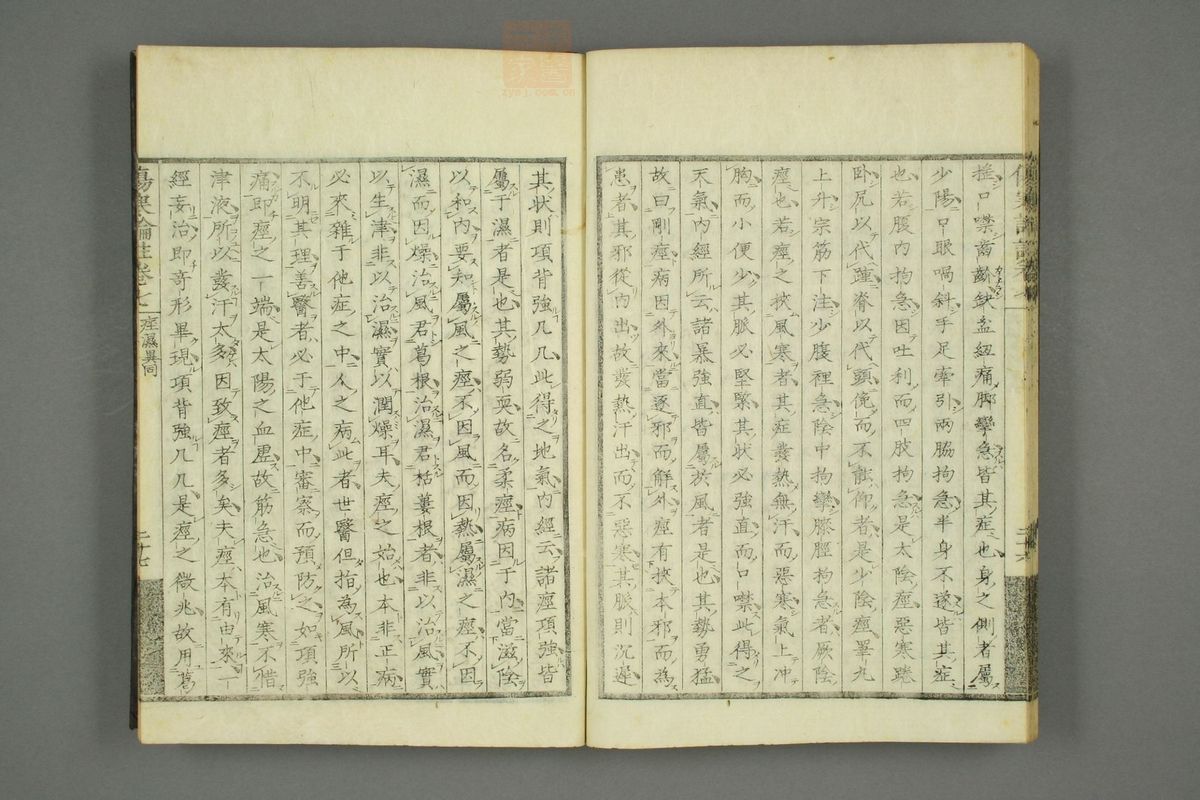 搖口噤齒齘缺盆紐痛脚攣急皆其症也身之側者屬
少陽口眼喎斜手足牽引兩脇拘急半身不遂皆其症
也若腹內拘急因吐利而四肢拘急是太陰痙惡寒踡
臥尻以代踵脊以代頭俛而不能仰者是少陰痙睪丸
上升宗筋下注少腹裡急陰中拘攣膝脛拘急者厥陰
痙也若痙之挾風寒者其症發熱無汗而惡寒氣上冲
胸而小便少其脈必堅緊其狀必強直而口噤此得之
天氣內經所云諸暴強直皆屬於風者是也其勢勇猛
故曰剛痙病因外來當逐邪而解外痙有挾本邪而為
患者其邪從內出故發熱汗出而不惡寒其脈則沉遲
其狀則項背強几几此得之地氣內經云諸痙項強皆
屬于濕者是也其勢弱耎故名柔痙病因于內當滋陰
以和內要知屬風之痙不因風而因熱屬濕之痙不因
濕而因燥治風君葛根治濕君栝蔞根者非以治風實
以生津非以治濕實以潤燥耳夫痙之始也本非正病
必來雜于他症之中人之病此者世醫但指為風所以
不明其理善醫者必于他症中審察而預防之如項強
痛即痙之一端是太陽之血虛故筋急也治風寒不惜
津液所以發汗太多因致痙者多矣夫痙本有由來一
經妄治即奇形畢現項背強几几是痙之微兆故用葛
傷寒論註卷七
痙濕異同
二十七
zysj.com.cn